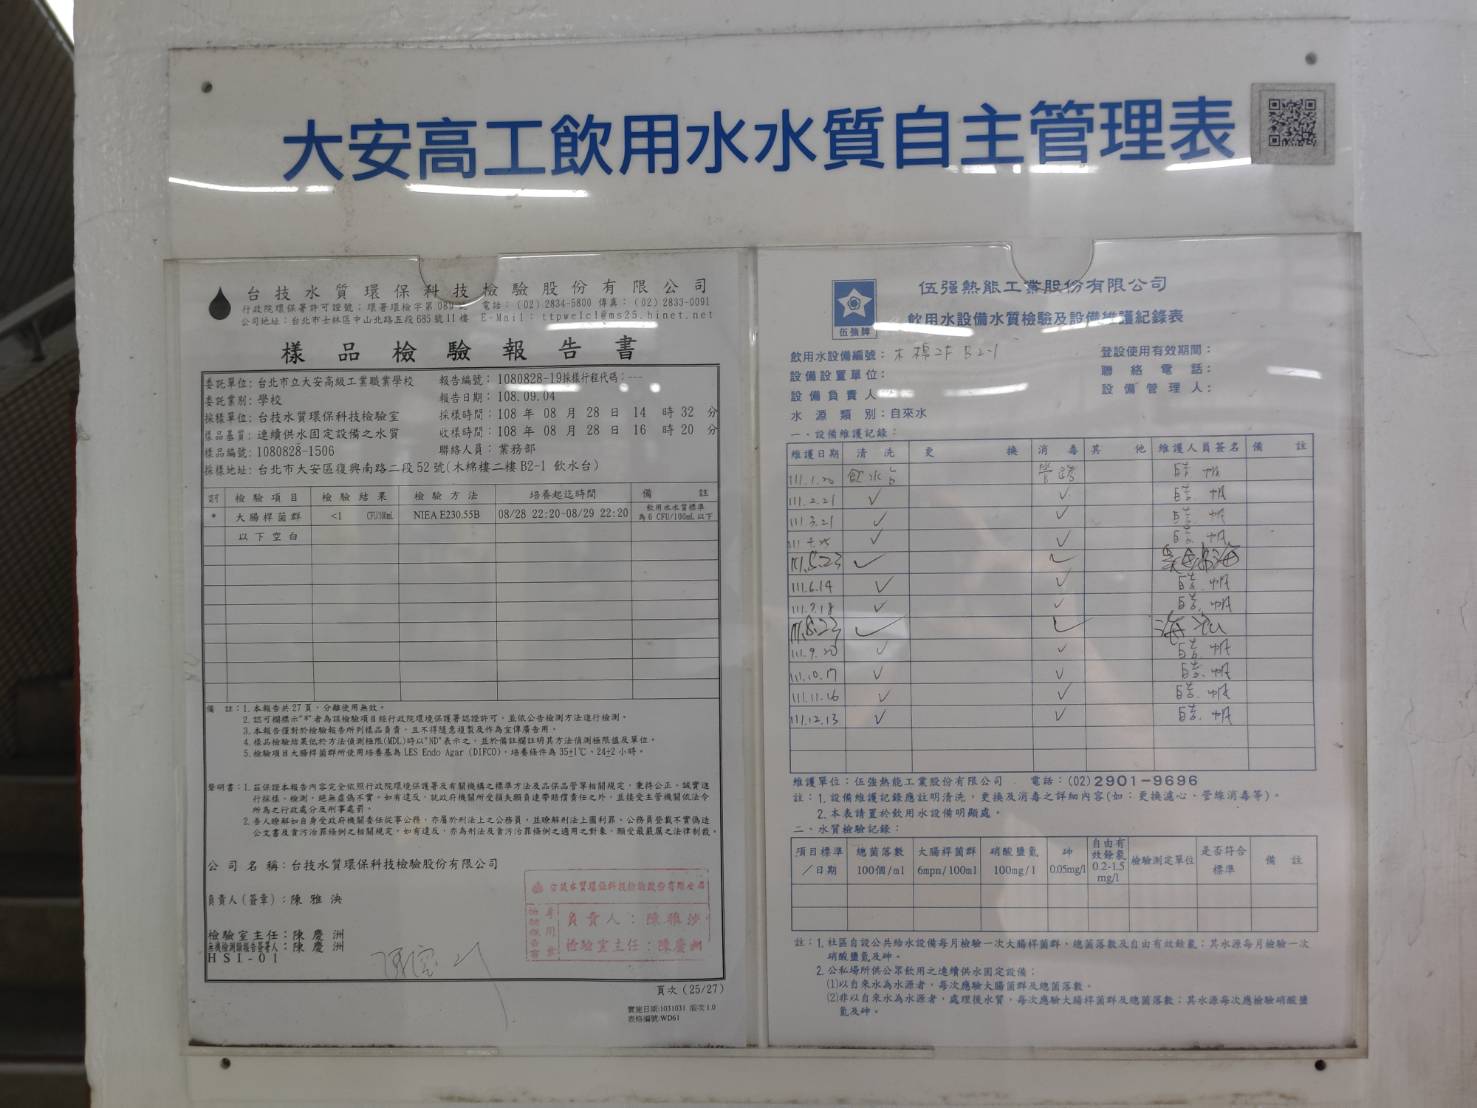 大安高工飲用水水質自主管理表
台技水質環保科技檢驗股份有限公司
行政院環保署許可證號：環署環檢字第 電話：(02)2834-5800 傳真：(02)2833-0091
公司地址：台北市士林區中山北路五段685號11樓 E-Mail：ttpwelcl@ms25.hinet.net
樣品檢驗報告書
委託單位：台北市立大安高級工業職業學校 報告編號：1080828-19採樣行程代碼：---
委託業別：學校 報告日期：108.09.04
採樣單位：台技水質環保科技檢驗室 採樣時間：108 年 08 月 28 日 14 時 32 分
樣品基質：連續供水固定設備之水質 收樣時間：108 年 08 月 28 日 16 時 20 分
樣品編號：1080828-1506 聯絡人員：業務部
採樣地址：台北市大安區復興南路二段52號(木棉樓二樓B2-1 飲水台)
檢驗項目 檢驗結果 檢驗方法 培養起迄時間 備註
* 大腸桿菌群 <1 CFU/100mL NIEA E230.55B 08/28 22:20-08/29 22:20 飲用水水質標準為6 CFU/100mL以下
以下空白
備註：1.本報告共27頁，分離使用無效。
2.認可欄標示"*"者為該檢驗項目經行政院環境保護署認證許可，並依公告檢測方法進行檢測。
3.本報告僅對於檢驗報告所列樣品負責，且不得隨意複製及作為宣傳廣告用。
4.樣品檢驗結果低於方法偵測極限(MDL)時以"ND"表示之，並於備註欄註明其方法偵測極限值及單位。
5.檢驗項目大腸桿菌群所使用培養基為LES Endo Agar (DIFCO)，培養條件為35±1℃、24±2小時。
聲明書：1.茲保證本報告內容完全依照行政院環境保護署及有關機構之標準方法及品保品管等相關規定，秉持公正、誠實進
行採樣、檢測。絕無虛偽不實，如有違反，就政府機關所受損失願負連帶賠償責任之外，並接受主管機關依法令
所為之行政處分及刑事處罰。
2.吾人瞭解如自身受政府機關委任從事公務，亦屬於刑法上之公務員，並瞭解刑法上圖利罪、公務員登載不實偽造
公文書及貪污治罪條例之相關規定，如有違反，亦為刑法及貪污治罪條例之適用之對象，願受最嚴厲之法律制裁。
公司名稱：台技水質環保科技檢驗股份有限公司
負責人(簽章)：陳雅泱
檢驗室主任：陳慶洲
無機檢測類報告簽署人：陳慶洲
HSI-01
台技水質環保科技檢驗股份有限公司
檢驗報告專用章
負責人：陳雅泱
檢驗室主任：陳慶洲
頁次 (25/27)
實施日期:1031031 版次1.0
表格編號:WD61
伍强熱能工業股份有限公司
伍強牌
飲用水設備水質檢驗及設備維護紀錄表
飲用水設備編號：木棉2F B2-1 登設使用有效期間：
設備設置單位： 聯絡電話：
設備負責人 設備管理人：
水源類別：自來水
一、設備維護記錄：
維護日期 清洗 更換 消毒 其他 維護人員簽名 備註
111.1.20 飲水台 管路
111.2.21 ✓ ✓
111.3.21 ✓ ✓
✓ ✓
111.5.23 ✓ ✓
111.6.14 ✓ ✓
111.7.18 ✓ ✓
111.8.23 ✓ ✓
111.9.20 ✓ ✓
111.10.17 ✓ ✓
111.11.16 ✓ ✓
111.12.13 ✓ ✓
維護單位：伍強熱能工業股份有限公司 電話：(02)2901-9696
註：1.設備維護記錄應註明清洗、更換及消毒之詳細內容(如：更換濾心、管線消毒等)。
2.本表請置於飲用水設備明顯處。
二、水質檢驗記錄：
項目標準／日期 總菌落數 100個/ml 大腸桿菌群 6mpn/100ml 硝酸鹽氮 100mg/l 砷 0.05mg/l 自由有效餘氯 0.2-1.5 mg/l 檢驗測定單位 是否符合標準 備註
註：1.社區自設公共給水設備每月檢驗一次大腸桿菌群、總菌落數及自由有效餘氯；其水源每月檢驗一次
硝酸鹽氮及砷。
2.公私場所供公眾飲用之連續供水固定設備：
⑴以自來水為水源者，每次應驗大腸菌群及總菌落數。
⑵非以自來水為水源者，處理後水質，每次應驗大腸桿菌群及總菌落數；其水源每次應檢驗硝酸鹽
氮及砷。